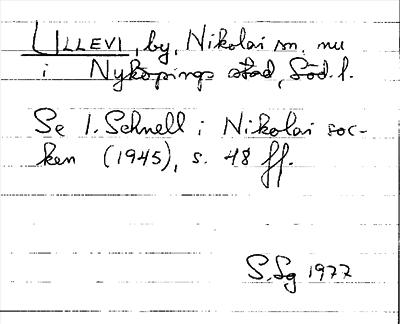 ULLEVI, by, Nikolai sn. nu
i Nyköpings stad, Söd. l.
Se I. Schnell i Nikolai soc-
ken (1945), s. 48 ff.
S.Sg 1977